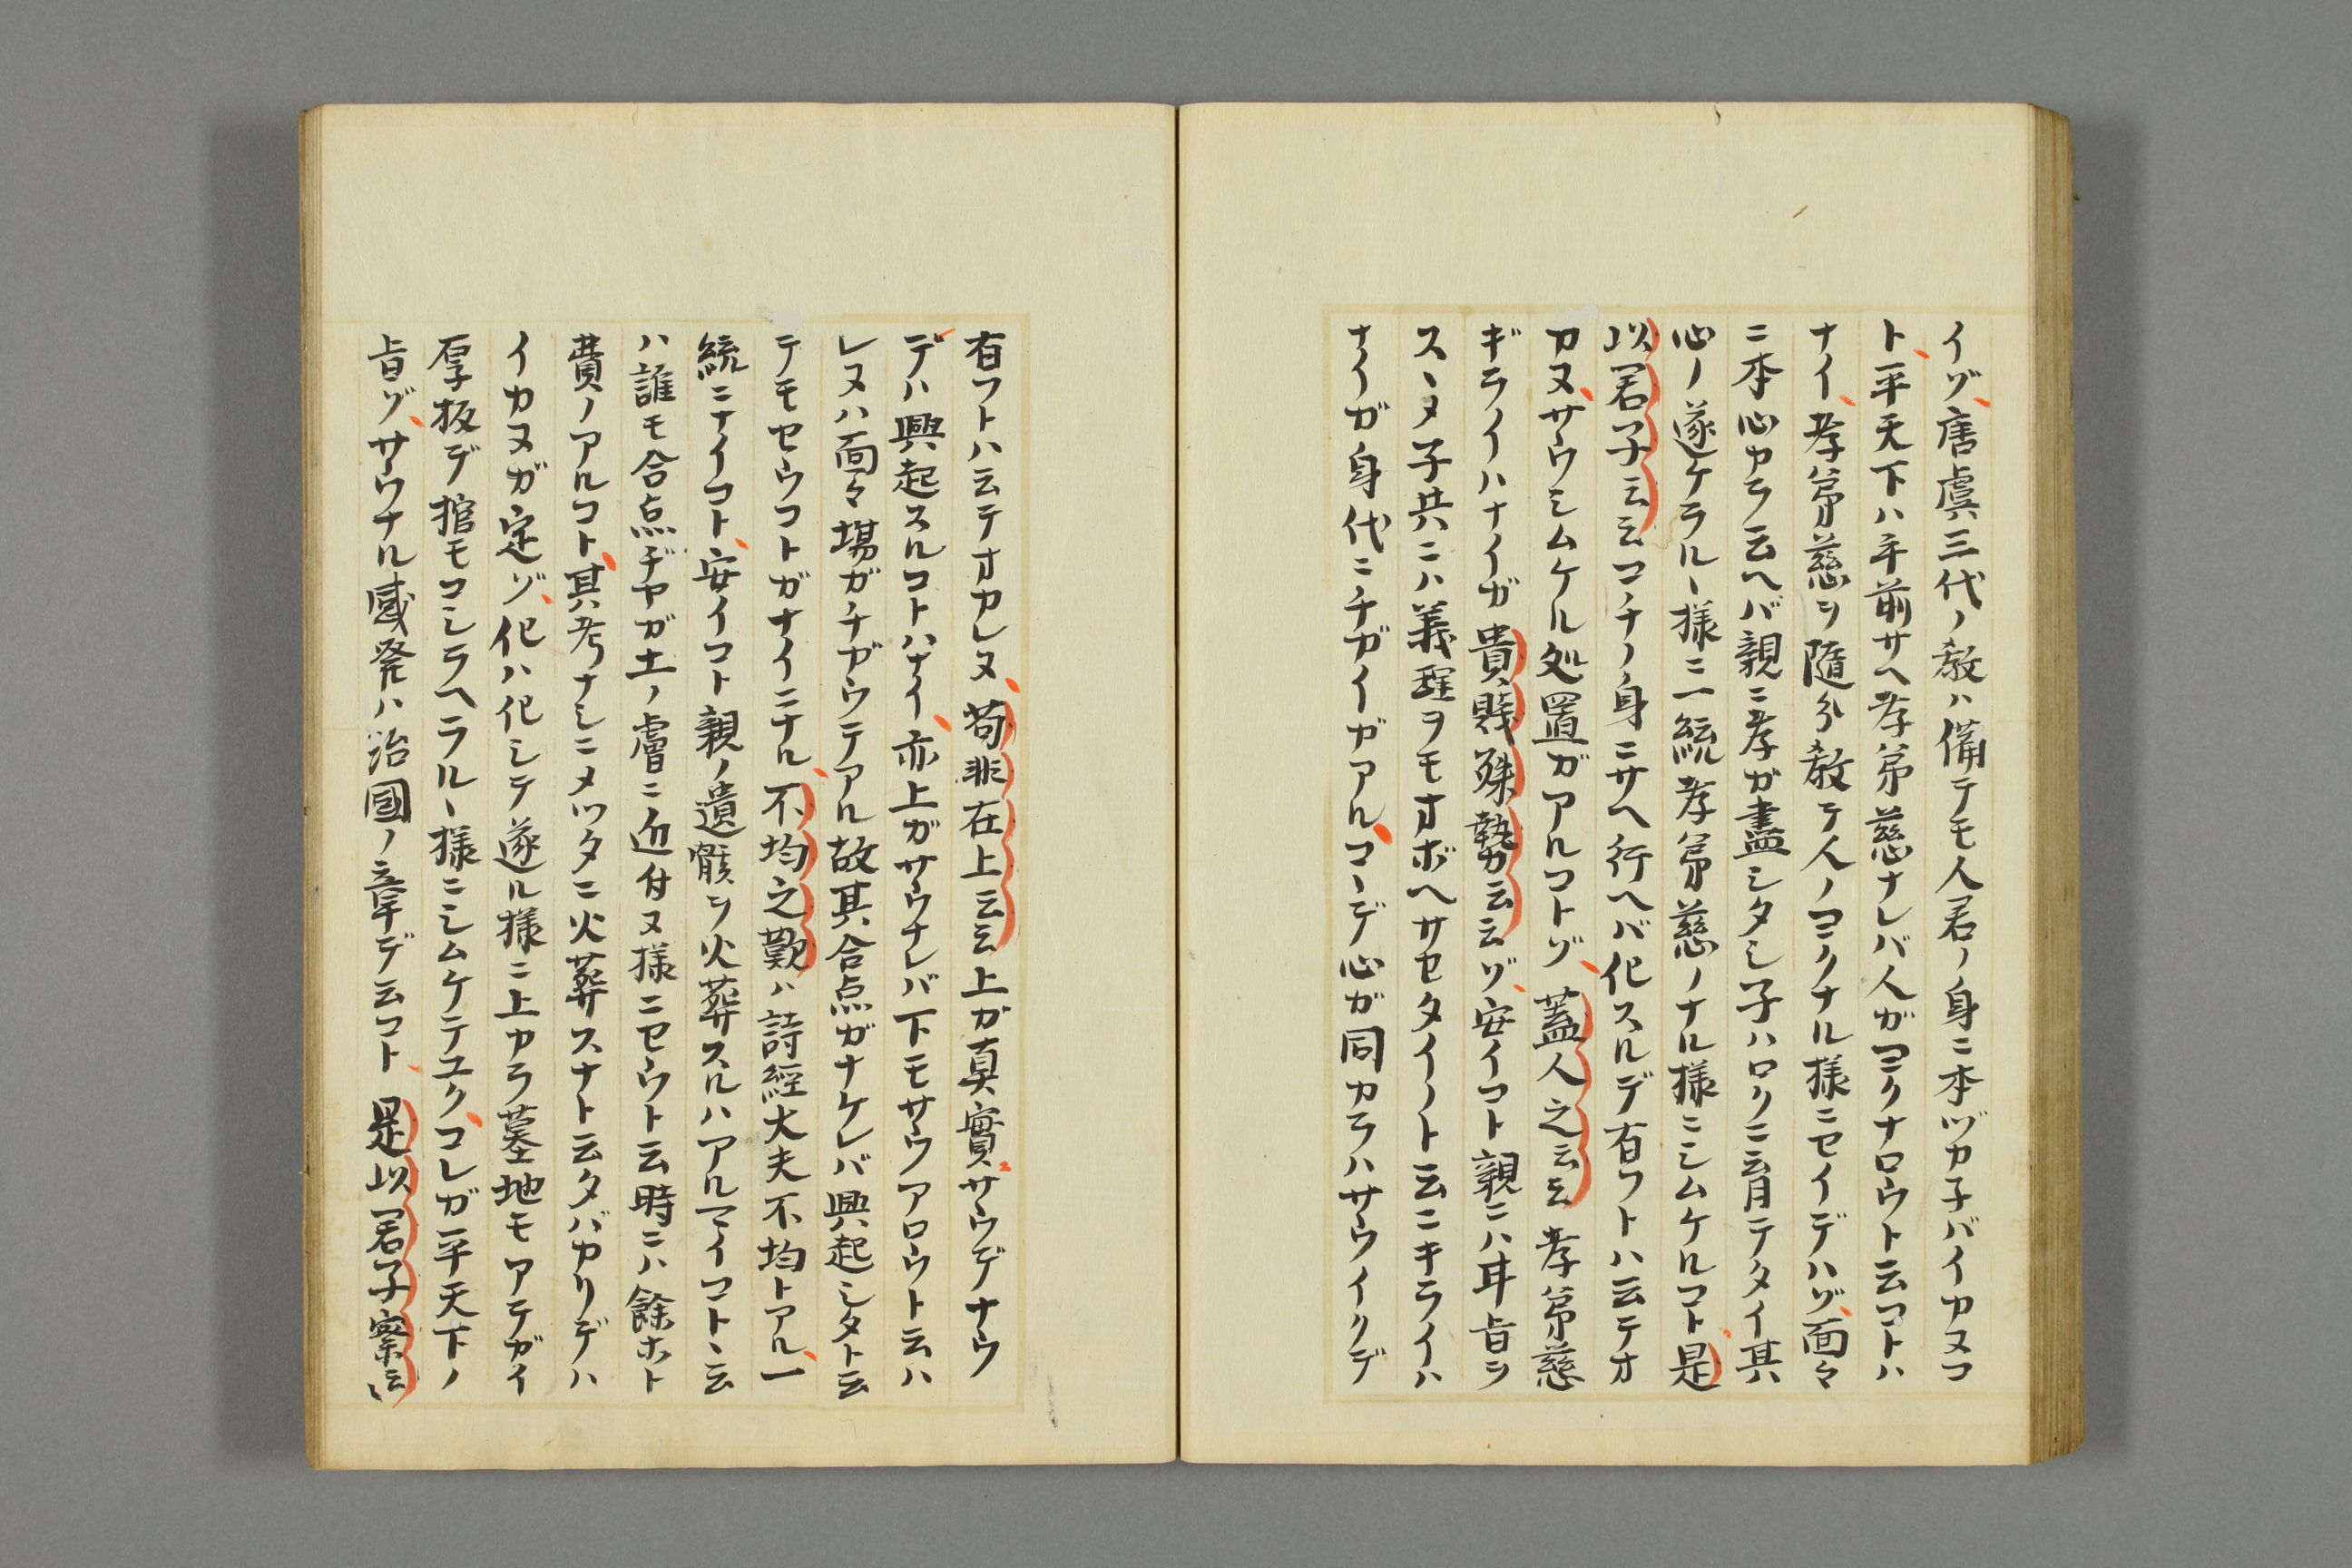 イゾ、唐虞三代ノ教ハ備テモ人君ノ身ニ本ヅカ子バイカヌコ
ト、平天下ハ手前サヘ孝弟慈ナレバ人ガヨクナロウト云コトハ
ナイ、孝弟慈ヲ随分教テ人ノヨクナル様ニセイデハゾ、面々
ニ本心カラ云ヘバ親ニ孝ガ盡シタシ子ハロクニ育テタイ其
心ノ遂ケラルヽ様ニ一統孝弟慈ノナル様ニシムケルコト、是
以君子云云コチノ身ニサヘ行ヘバ化スルデ有フトハ云テオ
カヌ、サウシムケル処置ガアルコトゾ、蓋人之云云孝弟慈
ギライハナイガ貴賤殊勢云云ゾ、安イコト親ニハ耳旨ヲ
スヽメ子共ニハ義理ヲモオボヘサセタイノト云ニキライハ
ナイガ身代ニチガイガアル、コヽデ心ガ同カラハサウイクデ
有フトハ云テオカレヌ、苟非在上云云上ガ真實、サウデナウ
デハ興起スルコトハナイ、亦上ガサウナレバ下モサウアロウト云ハ
レヌハ面々場ガチガウテアル故其合点ガナケレバ興起シタト云
テモセウコトガナイニナル、不均之歎ハ詩經大夫不均トアル、一
統ニナイコト、安イコト親ノ遺骸ヲ火葬スルハアルマイコトヽ云
ハ誰モ合点ヂヤガ土ノ膚ニ近付ヌ様ニセウト云時ニハ餘ホト
費ノアルコト、其考ナシニメツタニ火葬スナト云タバカリデハ
イカヌガ定ゾ、化ハ化シテ遂ル様ニ上カラ墓地モアテガイ
厚板デ棺モコシラヘラルヽ様ニシムケテユク、コレガ平天下ノ
旨ゾ、サウナル感発ハ治國ノ章デ云コト、是以君子察云